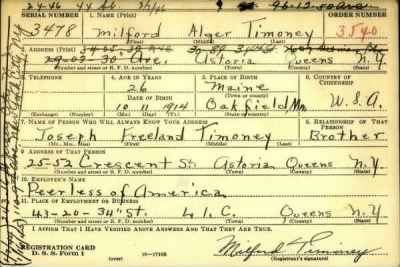 24-46 44 St. 96-12-50 Ave
SERIAL NUMBER 1. NAME (Print) ORDER NUMBER
3478 Milford Alger Timoney 3540
(First) (Middle) (Last)
2. ADDRESS (Print)
29-03-30 Ave, Astoria Queens N.Y.
(Number and street or R. F. D. number) (Town) (County) (State)
3. TELEPHONE 4. AGE IN YEARS 5. PLACE OF BIRTH 6. COUNTRY OF CITIZENSHIP
26 Maine
DATE OF BIRTH (Town or county)
10 11 1914 Oakfield U.S.A.
(Exchange) (Number) (Mo.) (Day) (Yr.) (State or country)
7. NAME OF PERSON WHO WILL ALWAYS KNOW YOUR ADDRESS 8. RELATIONSHIP OF THAT PERSON
Joseph Freeland Timoney Brother
(Mr., Mrs., Miss) (First) (Middle) (Last)
9. ADDRESS OF THAT PERSON
25-52 Crescent St. Astoria Queens N.Y.
(Number and street or R. F. D. number) (Town) (County) (State)
10. EMPLOYER'S NAME
Peerless of America
11. PLACE OF EMPLOYMENT OR BUSINESS
43-20-34th St. L.I.C. Queens N.Y.
(Number and street or R. F. D. number) (Town) (County) (State)
I AFFIRM THAT I HAVE VERIFIED ABOVE ANSWERS AND THAT THEY ARE TRUE.
REGISTRATION CARD
D. S. S. Form 1 (over) 16-17105 Milford Timoney
(Registrant's signature)